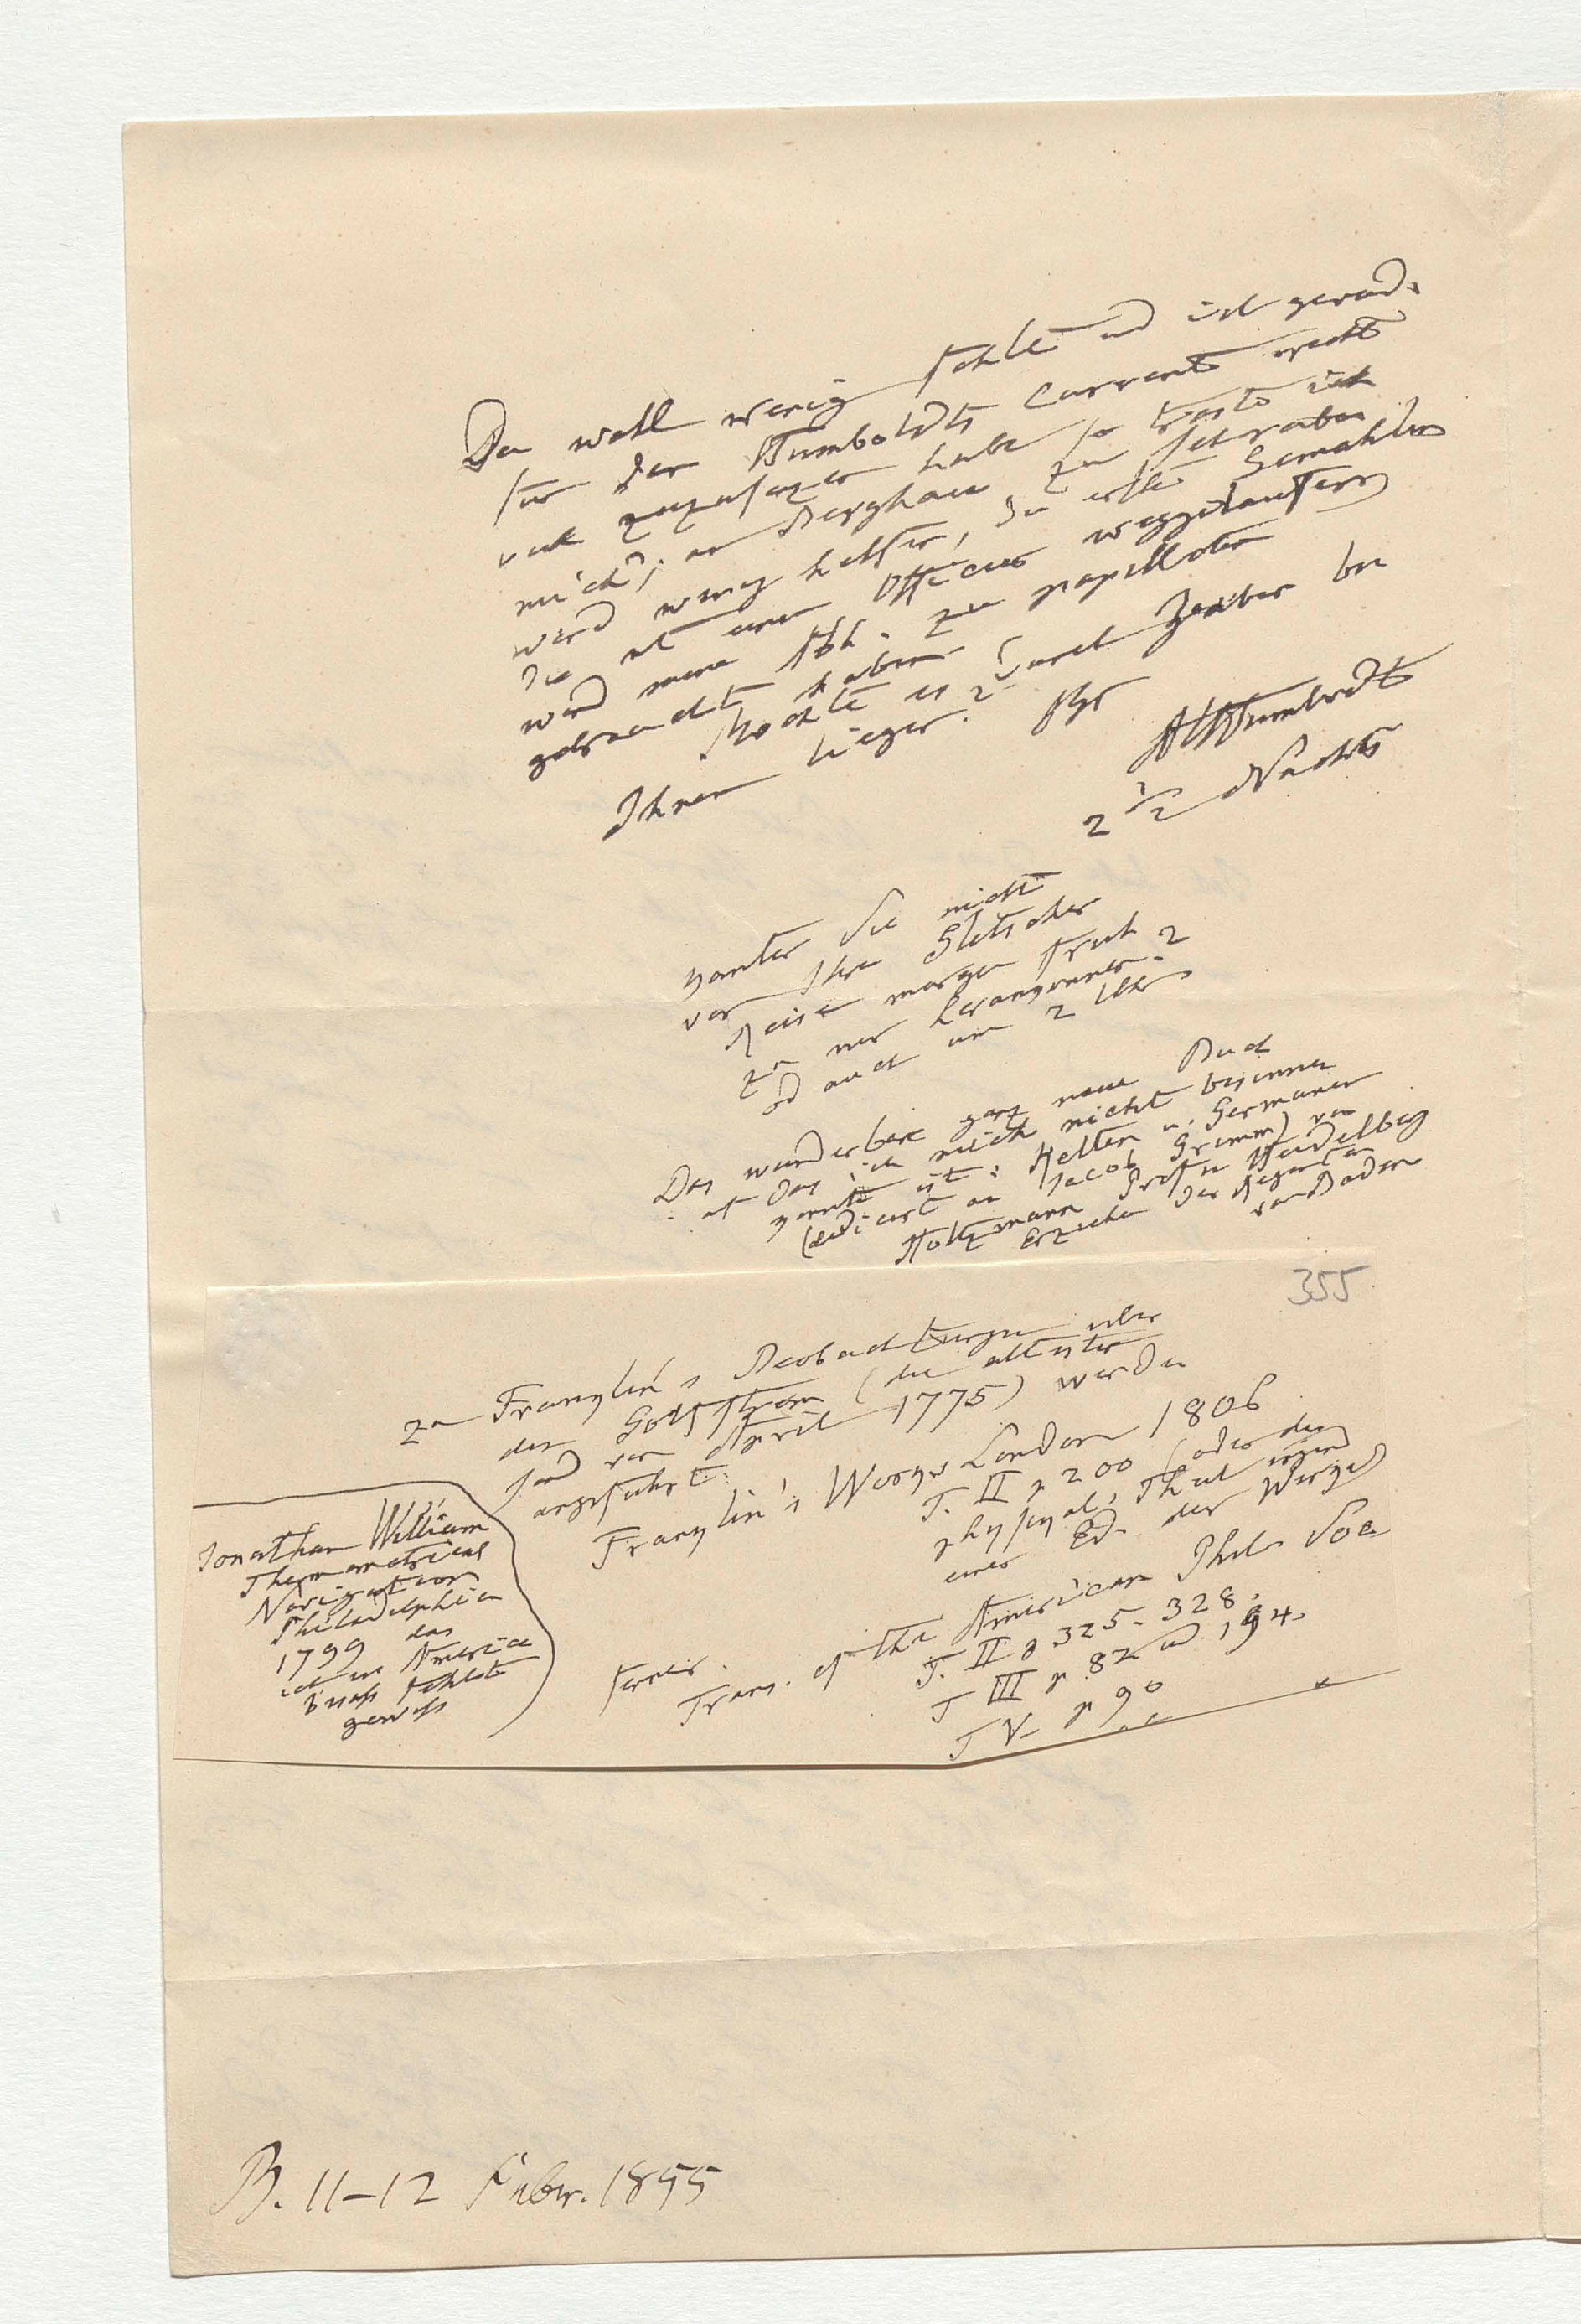 Da wohl wenig fehlte und ich gerade
für den Humboldts Current recht
viel
mich, an Berghaus zu schreiben
wird wenig helfen, da erste Gemahlin
die mit einem Officier weggelaufen
wird meine Abh. zu papilloten
gebraucht haben
Möchte es durch Zauber bei
Ihnen liegen? Ihr
AvHumboldt
2 1/2 Nachts
Sie nicht
vor Ihrer Gletscher
Reise morgen früh
zu mir heranzukommen?
od auch um 2 Uhr
Das wunderbare ganz neue Buch
auf das ich mich nicht besinnen
konnte ist: Kelten u. Germanen
(dedicirt an Jacob Grimm) von
Holtzmann Prof in Heidelberg
Erzieher des Regenten
von Baden
355
Zu Franklin's Beobachtungen über
den Golfstrom (die ältesten
sind von April 1775) werden
angeführt:
Franklin's Works London 1806
T. II p 200 (oder der
physikal. Theil irgend
einer Ed. der Works)
ferner.
Trans. of the American Phil. Soc
T. II p 325-328.
T III p 82 und 194.
T V. p 90
Jonathan William
Thermometrical
Navigation
Philadelphia
1799 das
ich in America
besass fehlt
gewiss
B. 11-12 Febr. 1855